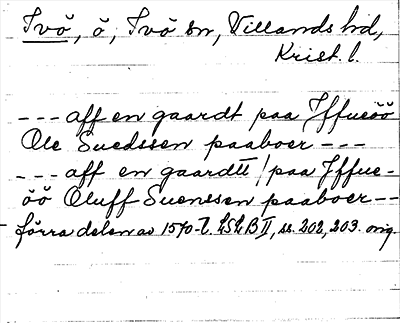 Ivö, ö, Ivö sn, Villands hd,
Krist. l.
--- aff en gaardt paa Jffueöö
Ole Suedssen paaboer ---
--- aff en gaardtt / paa Jffue-
öö Oluff Suenssen paaboer --
förra delen av 1570-t. LSLB II, ss. 202, 203. orig.